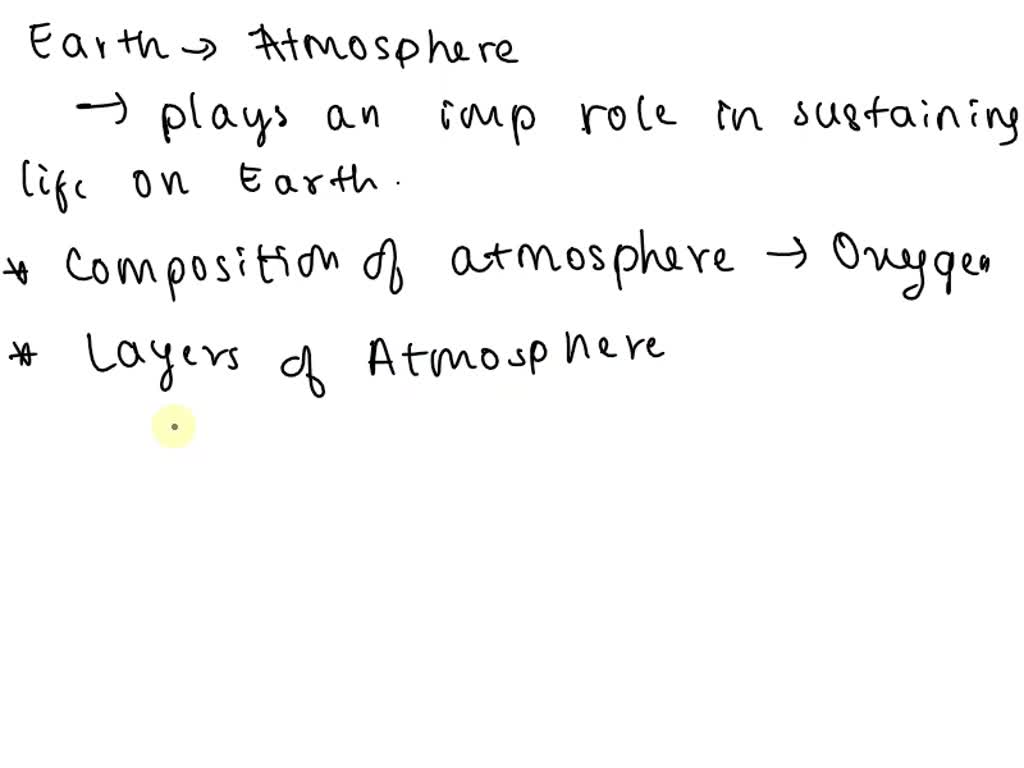 Earth → Atmosphere
→ plays an imp role in sustaining
life on Earth.
* Composition of atmosphere → Oxygen
* Layers of Atmosphere